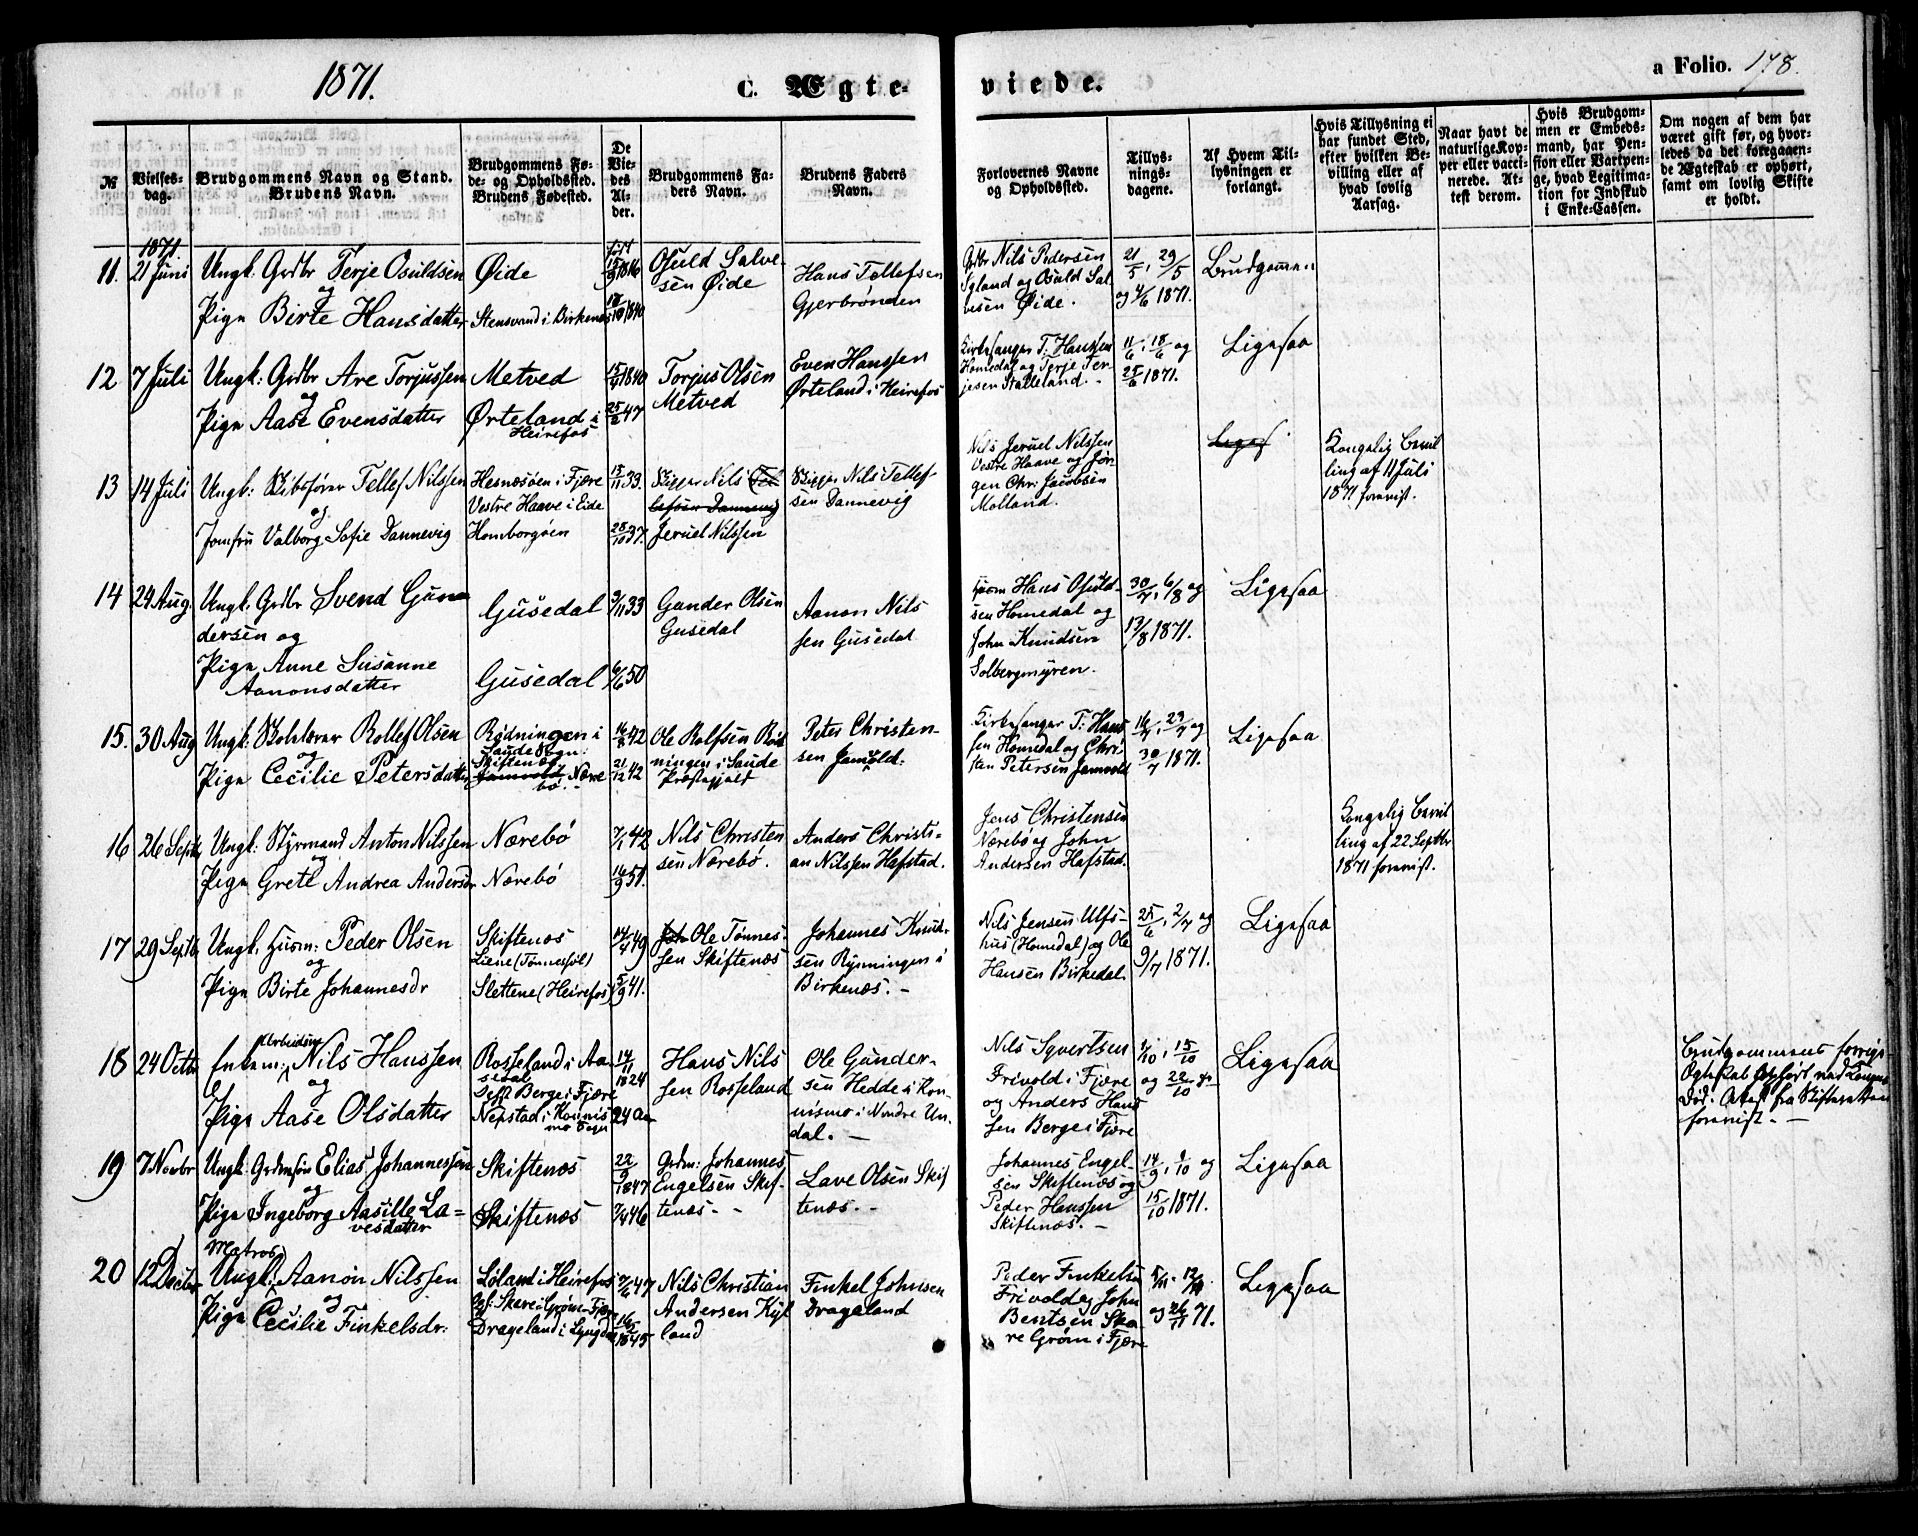 1871.
C. Ægte-
viede.
a Folio. 178.
№
Vielses-
dag.
Brudgommens Navn og Stand.
Brudens Navn.
Brudgommens Fø-
de- og Opholdssted.
Brudens Fødested.
De
Vie-
des
Al-
der.
Brudgommens Fa-
ders Navn.
Brudens Faders
Navn.
Forlovernes Navne
og Opholdssted.
Tillys-
nings-
dagene.
Af Hvem Til-
lysningen er
forlangt.
Hvis Tillysning ei
har fundet Sted,
efter hvilken Be-
villing eller af
hvad lovlig
Aarsag.
Naar havt de
naturlige Kop-
per eller vacci-
nerede. At-
test derom.
Hvis Brudgom-
men er Embeds-
mand, har Pen-
sion eller Vartpen-
ge, hvad Legitima-
tion for Indskud
i Enke-Cassen.
Om nogen af dem har
været gift før, og hvor-
ledes da det foregaaen-
de Ægteskab er ophørt,
samt om lovlig Skifte
er holdt.
1871
11. 21 Juni
Ungk: Grdbr Terje Osuldsen
og
Pige Birte Hansdatter
Øide
Stensvand i Birkenæs
født
15/9 1816
18/10 1840
Osuld Salve-
sen Øide
Hans Tellefsen
Gjerbrønden
Gdbr Nils Pedersen
Igland og Osuld Sal
vesen Øide.
21/5, 29/5
og 4/6 1871.
Brudgommen
12 7 Juli
Ungk: Grdbr Are Torjussen
og
Pige Aase Evensdatter
Metved
Ørteland i
Heirefos
15/9 1840
25/2 47
Torjus Olsen
Metved
Even Hanssen
Ørteland i Heirefos
Kirkesanger T: Hanssen
Homedal og Terje Ter-
jesen Stalleland.
11/6, 18/6 og
25/6 1871.
Ligesaa
13 14 Juli
Ungk: Skibsfører Tellef Nilssen
og
Jomfru Valborg Sofie Dannevig
Hesnæsøen i Fjære
Vestre Haave i Eide
Homborgøen
15/11 33.
28/10 37.
Skipper Nils (Tel
lefsen Dannevig)
Jeruel Nilssen
Skipper Nils Tellef-
sen Dannevig
Nils Jeruel Nilssen
Vestre Haave og Jør-
gen Chr: Jacobsen
Molland.
Liges
Kongelig Bevil
ling af 11 Juli
1871 forevist.
14 24 Aug.
Ungk: Grdbr Svend Gun
dersen og
Pige Anne Susanne
Aanonsdatter
Gusedal
Gusedal
9/11 33
6/6 50
Gunder Olsen
Gusedal
Aanon Nils
sen Gusedal
Husm Hans Osuld-
sen Homedal og
John Knudsen
Solbergmyren.
30/7, 6/8 og
13/8 1871.
Ligesaa
15. 30 Aug
Ungk: Skolelærer Rollef Olsen
og
Pige Cecilie Petersdatter
Rødningen i
Saude Sogn:
Skiftenæs
Jamvold, Nære
bö.
16/8 42
21/12 42
Ole Rolfsen Rød
ningen i Saude
Præstegjeld
Peter Christen-
sen Jamvold.
Kirkesanger T: Hans
sen Homedal og Chri
sten Petersen Jamvold
16/7, 23/7 og
30/7 1871.
Ligesaa
16 26 Septbr
Ungk: Styrmand Anton Nilssen
og
Pige Grete Andrea Andersdr
Nærebö
Nærebö
7/1 42
16/9 51.
Nils Christen
sen Nærebö.
Anders Christi-
an Nilssen Hafstad.
Jens Christensen
Nærebö og John
Andersen Hafstad.
Kongelig Bevil
ling af 22 Septbr
1871 forevist.
17 29 Septb.
Ungk. Husm: Peder Olsen
og
Pige Birte Johannesdr
Skiftenæs
Liene (Tønnessöl)
Slettene (Heirefos)
14/4 49
5/9 41.
Joh Ole Tønnes-
sen Skiftenæs
Johannes Knud-
sen Rynningen i
Birkenæs. -
Nils Jensen Ulfs-
hus (Homedal) og Ole
Hansen Birkedal
25/6, 2/7 og
9/7 1871.
Ligesaa
18 24 Octb
Arbeidsm
Enkem: Nils Hanssen
og
Pige Aase Olsdatter
Rosseland i Aa
seral
Opst Berge i Fjære
Nepstad i Konnis
mo Sogn
14/11 1824
24 Aar
Hans Nils
sen Rosseland
Ole Gunder-
sen Hedde i Kon-
nismo i Nordre Un-
dal. -
Nils Syvertsen
Frivold i Fjære
og Anders Hans
sen Berge i Fjære
1/10, 15/10
og 22/10
Ligesaa
Brudgommens forrige
Egteskab ophørt ved Konens
Død. Attest fra Skifteretten
forevist. -
19 7 Novbr
Ungk: Grdmsön Elias Johannessen
og
Pige Ingeborg Aasille La-
vesdatter
Skiftenæs
Skiftenæs
22/9 1847
7/4 46
Grdm: Johannes
Engelsen Skif-
tenæs. -
Lave Olsen Skif
tenæs. -
Johannes Engel-
sen Skiftenæs og
Peder Hanssen
Skiftenæs. -
14/9, 8/10 og
15/10 1871.
Ligesaa
20 12 Decbr
Matros
Ungk: Aanon Nilssen
og
Pige Cecilie Finkelsdr:
Löland i Heirefos
Opst: Skare i Grøm Fjære
Drageland i Lyngdal
7/6 47
16/5 1845
Nils Christian
Andersen Kyl
land
Finkel Johnsen
Drageland
Peder Finkelsen
Frivold og John
Bentsen Ska-
re Grøm i Fjære
5/11. 12/11.
og 26/11 71.
Ligesaa